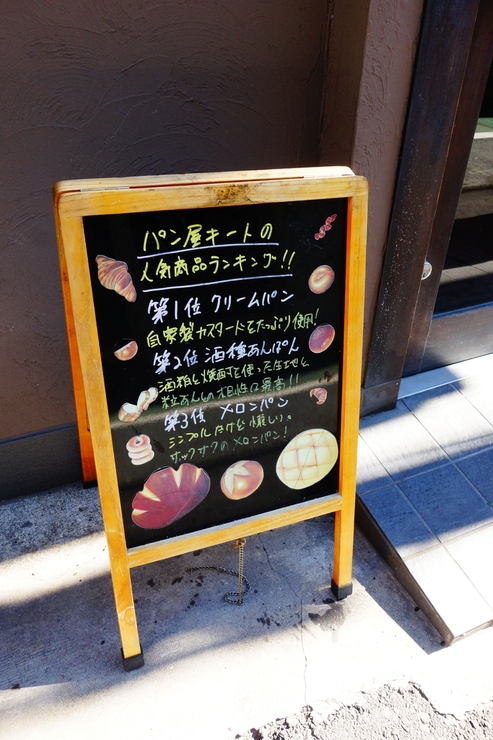 パン屋キートの
人気商品ランキング!!
第1位 クリームパン
自家製カスタードをたっぷり使用!
第2位 酒種あんぱん
酒粕と焼酎を使った生地と
粒あんとの相性は最高!!
第3位 メロンパン
シンプルだけど懐しい。
サックサクのメロンパン!